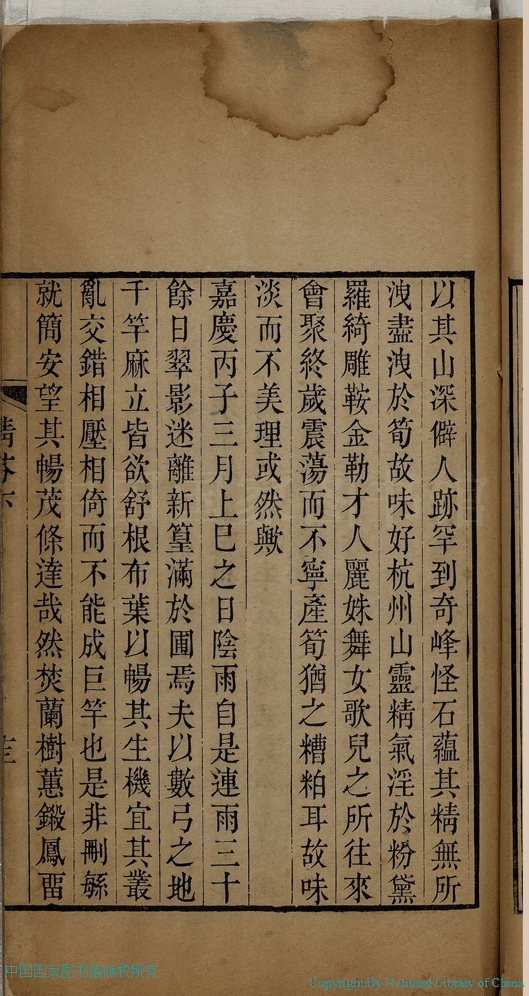 以其山深僻人跡罕到奇峰怪石蘊其精無所
洩盡洩於筍故味好杭州山靈精氣淫於粉黛
羅綺雕鞍金勒才人麗姝舞女歌兒之所往來
會聚終歲震蕩而不寧產筍猶之糟粕耳故味
淡而不美理或然歟
嘉慶丙子三月上巳之日陰雨自是連雨三十
餘日翠影迷離新篁滿於圃焉夫以數弓之地
千竿麻立皆欲舒根布葉以暢其生機宜其叢
亂交錯相壓相倚而不能成巨竿也是非刪繇
就簡安望其暢茂條達哉然焚蘭樹蕙鍛鳳畱
中国国家图书馆版权所有
Copyright By National Library of China